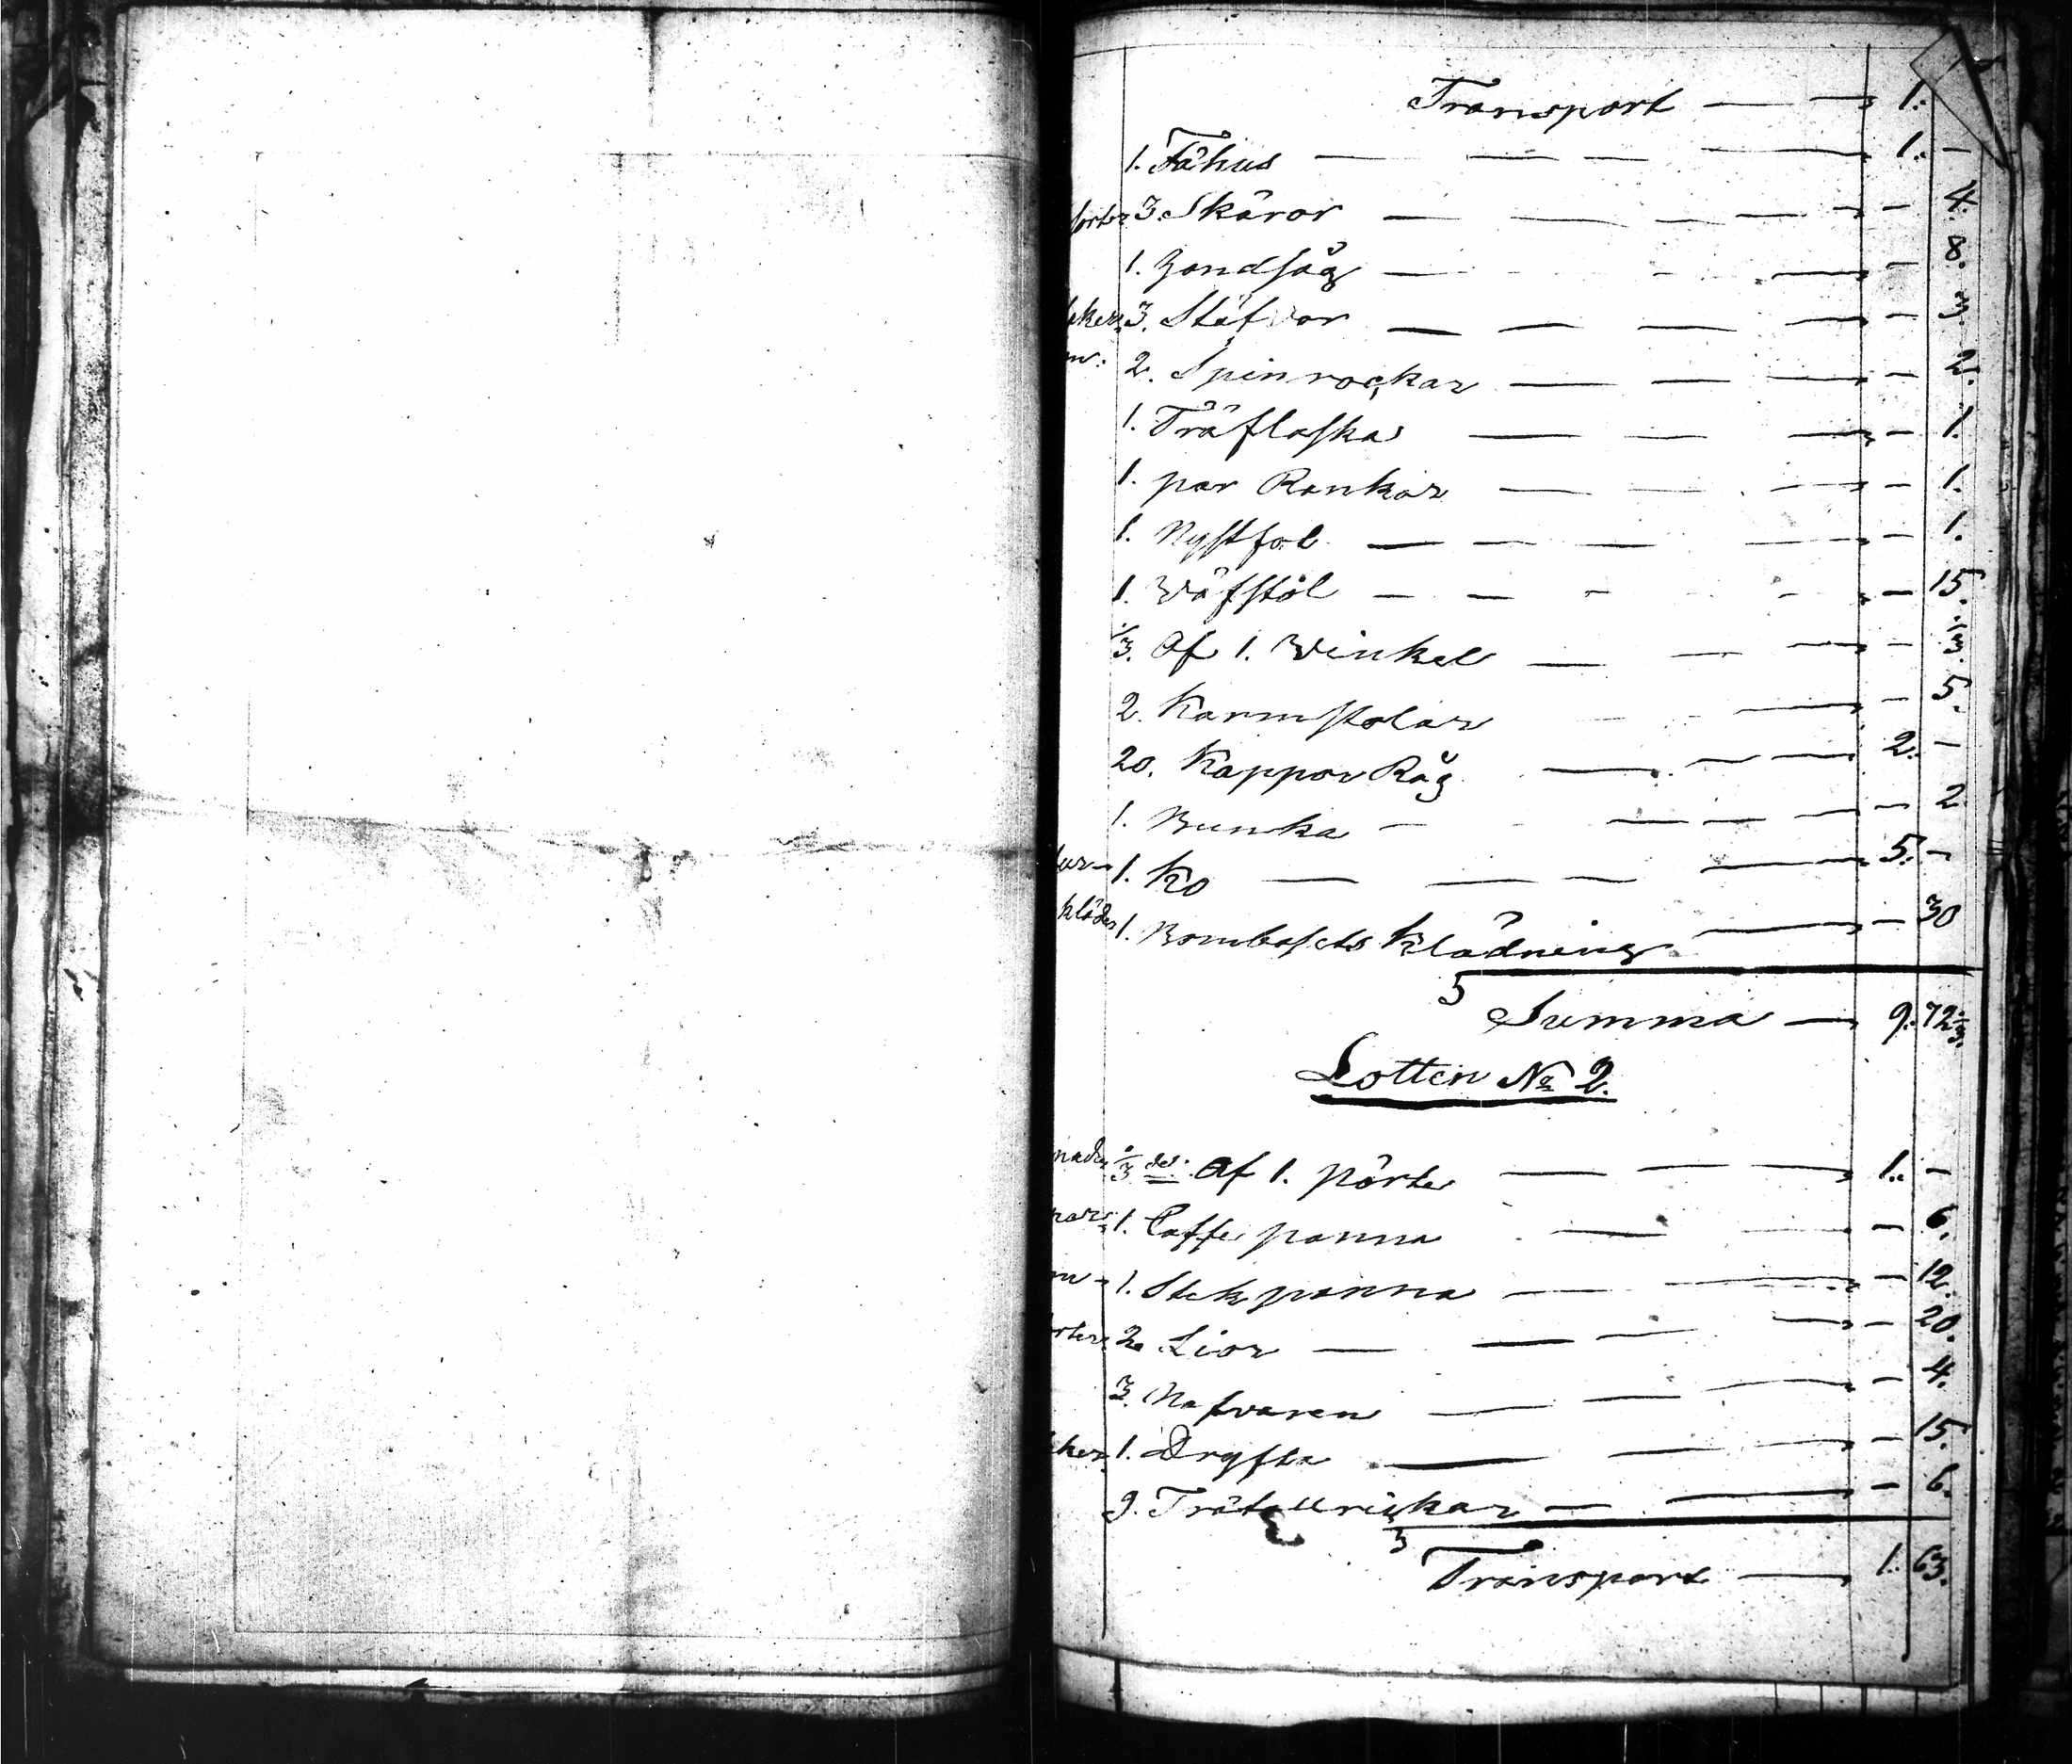 Transport — — 1.
1. Fähus — — — — 1. –
sorter 3. Skäror — — — — – 4.
1. Handsåg — — — – 8.
åker 3. Stäfvor — — — — – 3.
2. Spinrockar — — — – 2.
1. Träflaska — — — – 1.
1. par Rankor — — — – 1.
1. Nystfot — — — — – 1.
1. Wäfstol — — — – 15.
1/3. Af 1. Winkel — — — – 1/3.
2. Karmstolar — – 5.
20. Kappor Råg — — — 2. –
1. Bunka — — — – 2
1. Ko — — — — 5. –
kläder 1. Bombasets Klädning — – 30
Summa — 9. 72 1/3.
Lotten No 2.
1/3 del. Af 1. pörte — — — 1. –
1. Caffe panna — — – 6.
1. Stekpanna — — – 12.
2. Lior — — — — – 20.
3. Nafvaren — — — – 4.
1. Dryfta — — — – 15.
9. Trätallrickar — — – 6.
Transport — 1. 63.